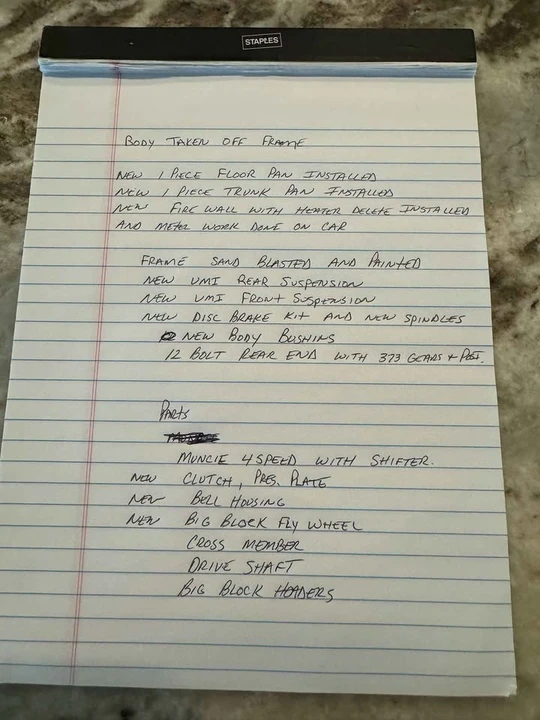 STAPLES
BODY TAKEN OFF FRAME
NEW 1 PIECE FLOOR PAN INSTALLED
NEW 1 PIECE TRUNK PAN INSTALLED
NEW FIRE WALL WITH HEATER DELETE INSTALLED
AND METEL WORK DONE ON CAR
FRAME SAND BLASTED AND PAINTED
NEW UMI REAR SUSPENSION
NEW UMI FRONT SUSPENSION
NEW DISC BRAKE KIT AND NEW SPINDLES
NEW BODY BUSHINS
12 BOLT REAR END WITH 373 GEARS + POSI.
PARTS
MUNCIE 4 SPEED WITH SHIFTER.
NEW CLUTCH, PRES. PLATE
NEW BELL HOUSING
NEW BIG BLOCK FLY WHEEL
CROSS MEMBER
DRIVE SHAFT
BIG BLOCK HEADERS